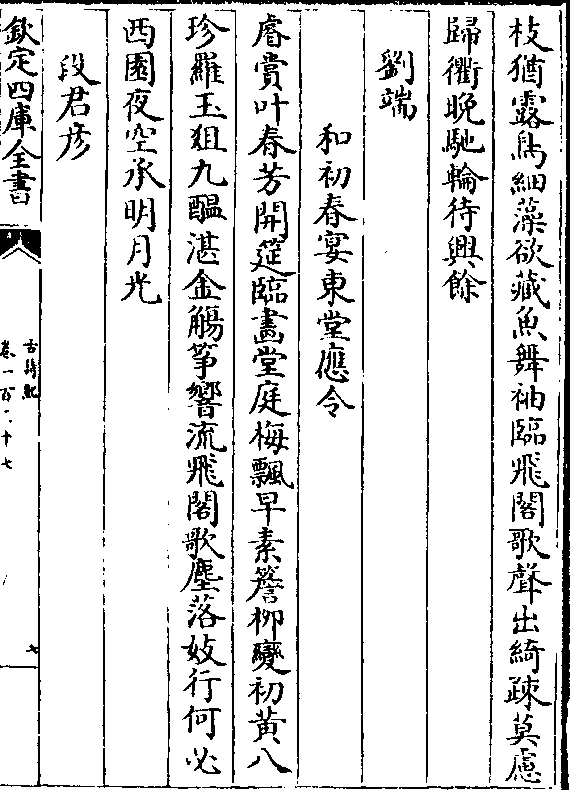 枝猶露鳥細藻欲藏魚舞袖臨飛閣歌聲出綺疎莫慮
歸衢晩馳輪待興餘
劉端
和初春宴東堂應令
睿賞叶春芳開筵臨畫堂庭梅飄早素簷柳變初黄八
珍羅玉俎九醖湛金觴箏響流飛閣歌塵落妓行何必
西園夜空承明月光
段君彦
欽定四庫全書
古詩紀
卷一百二十七
七